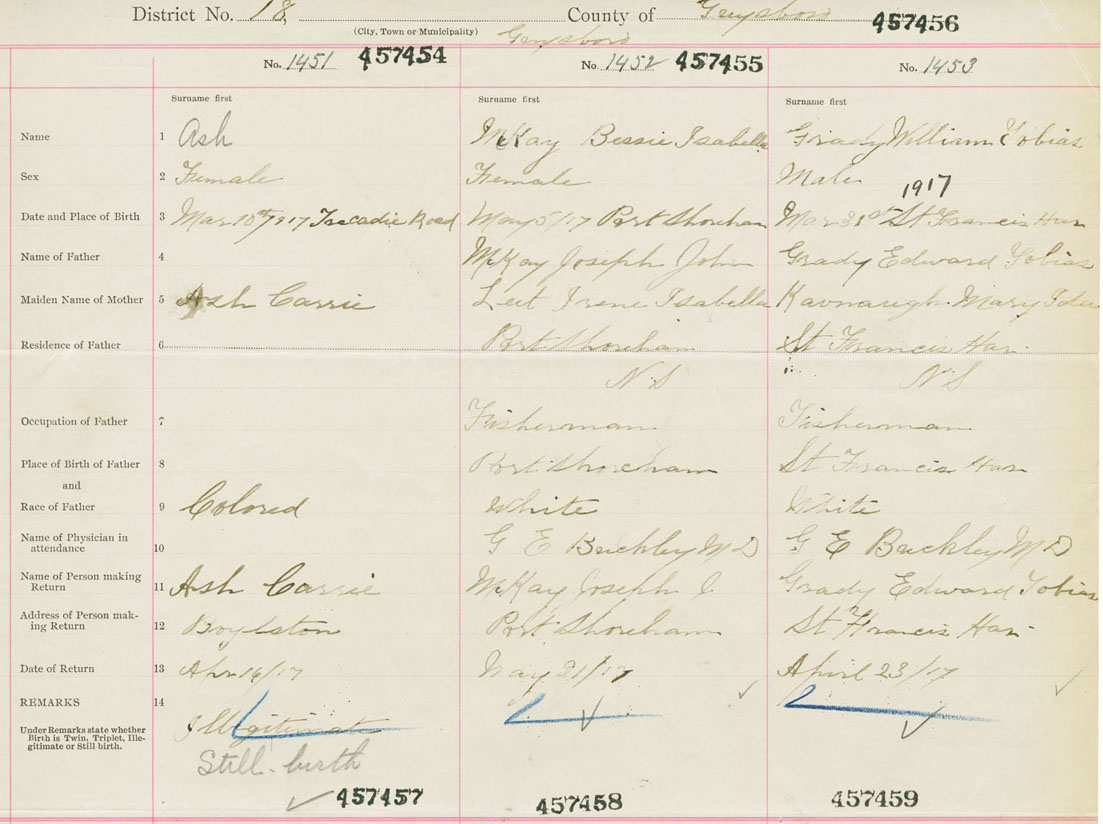 District No. 18 County of Guysboro 457456
(City, Town or Municipality)
Guysboro
No. 1451 457454 No. 1452 457455 No. 1453
Surname first Surname first Surname first
Name 1 Ash McKay Bessie Isabella Grady William Tobias
Sex 2 Female Female Male
1917
Date and Place of Birth 3 Mar 10th 1917 Tracadie Road May 5/17 Port Shoreham Mar 31st St Francis Har
Name of Father 4 McKay Joseph John Grady Edward Tobias
Maiden Name of Mother 5 Ash Carrie Irene Isabella Kavnaugh Mary
Residence of Father 6 Port Shoreham St Francis Har
N S N S
Occupation of Father 7 Fisherman Fisherman
Place of Birth of Father 8 Port Shoreham St Francis Har
and
Race of Father 9 Colored White White
Name of Physician in
attendance 10 G E Buckley M D G E Buckley M D
Name of Person making
Return 11 Ash Carrie McKay Joseph J. Grady Edward Tobias
Address of Person mak-
ing Return 12 Boylston Port Shoreham St Francis Har
Date of Return 13 Apr 16/17 May 31/17 April 23/17
REMARKS 14
Under Remarks state whether
Birth is Twin, Triplet, Ille-
gitimate or Still birth.
Illegitimate
Still-birth
457457 457458 457459